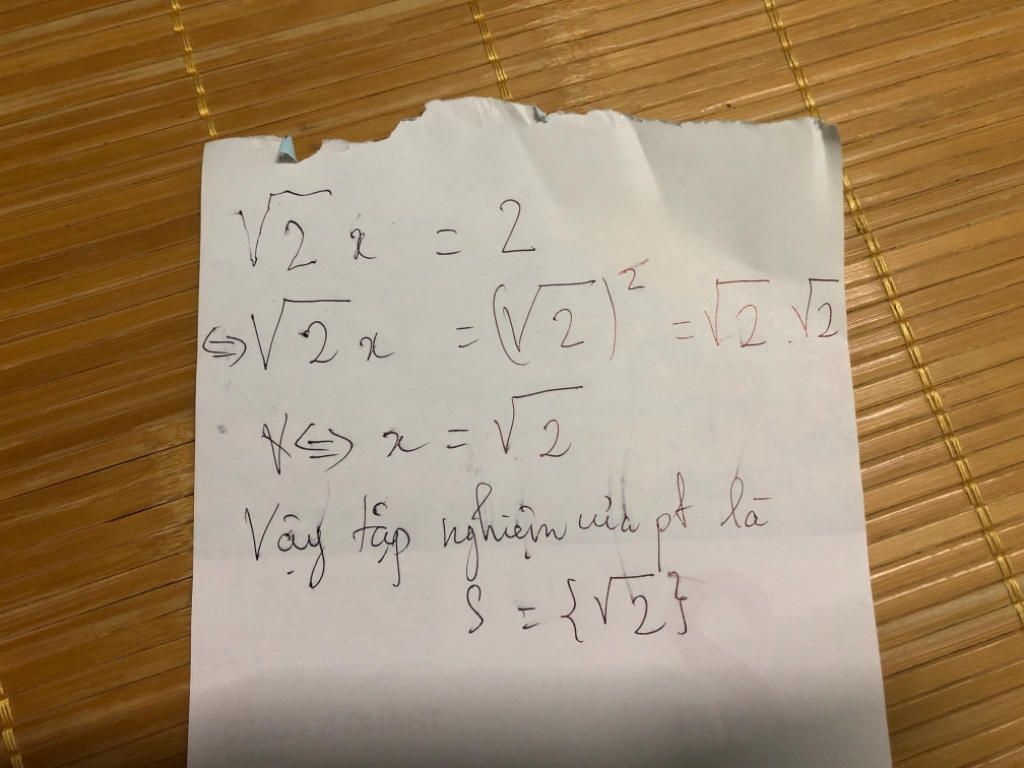 √2 x = 2
⇔ √2 x = (√2)² = √2 . √2
⇔ x = √2
Vậy tập nghiệm của pt là
S = {√2}